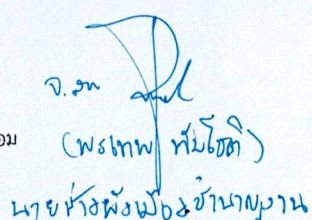 จ.อ.
อม
(พรเทพ พันโชติ)
นายช่างผังเมืองชำนาญงาน